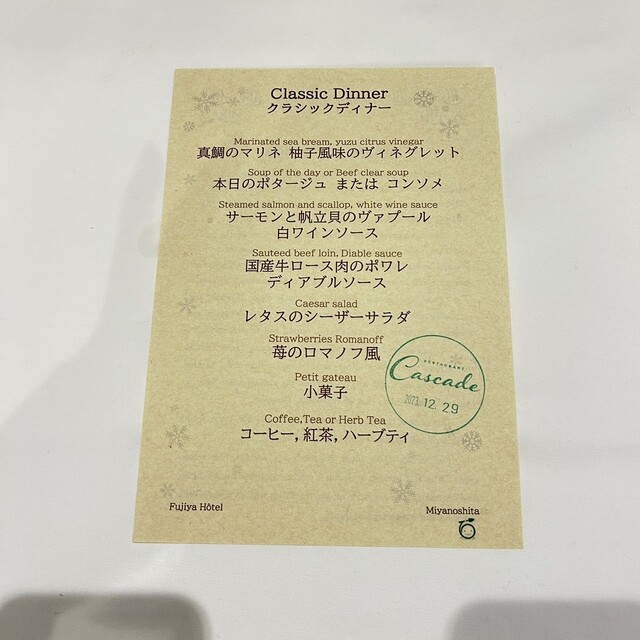 Classic Dinner
クラシックディナー
Marinated sea bream, yuzu citrus vinegar
真鯛のマリネ 柚子風味のヴィネグレット
Soup of the day or Beef clear soup
本日のポタージュ または コンソメ
Steamed salmon and scallop, white wine sauce
サーモンと帆立貝のヴァプール
白ワインソース
Sauteed beef loin, Diable sauce
国産牛ロース肉のポワレ
ディアブルソース
Caesar salad
レタスのシーザーサラダ
Strawberries Romanoff
苺のロマノフ風
Petit gateau
小菓子
Coffee,Tea or Herb Tea
コーヒー, 紅茶, ハーブティ
RESTAURANT
Cascade
2023.12.29
Fujiya Hôtel
Miyanoshita